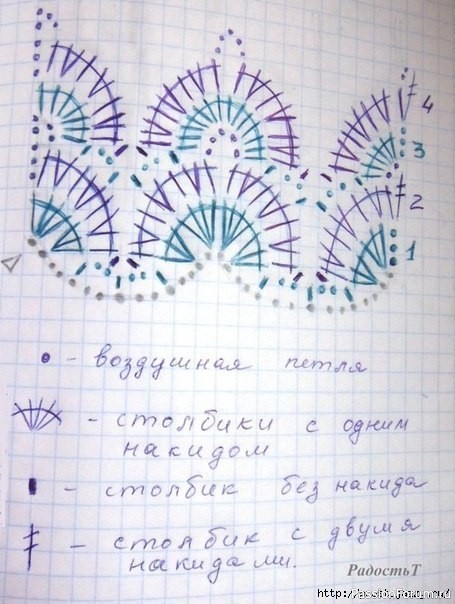 4
3
2
1
- воздушная петля
- столбики с одним
накидом
- столбик без накида
- столбик с двумя
накидами.
РадостьТ